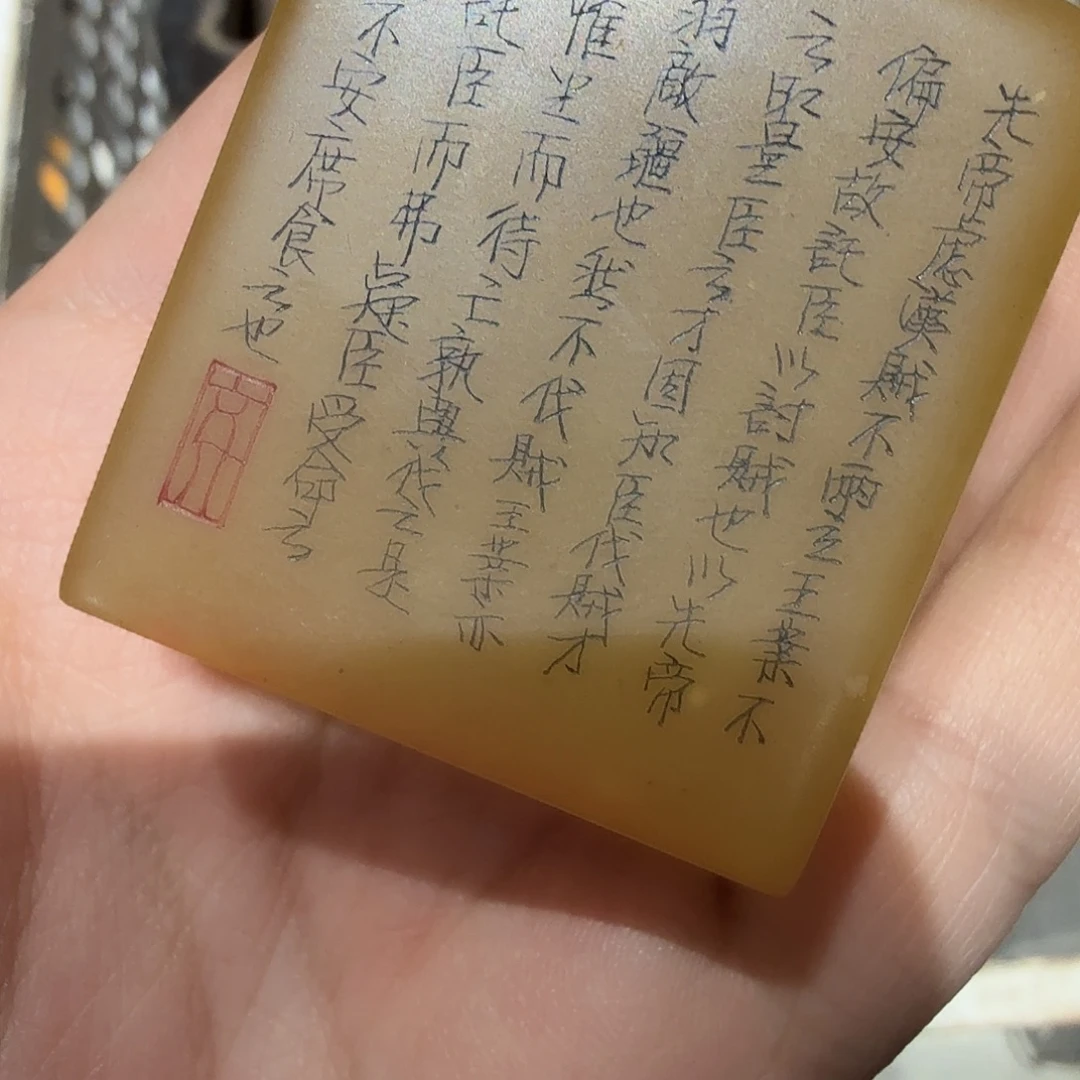 先帝慮漢賊不兩立王業不
偏安故託臣以討賊也以先帝
之明量臣之才固知臣伐賊才
弱敵彊也然不伐賊王業亦
惟坐而待亡孰與伐之是
託臣而弗疑臣受命之
不安席食之也